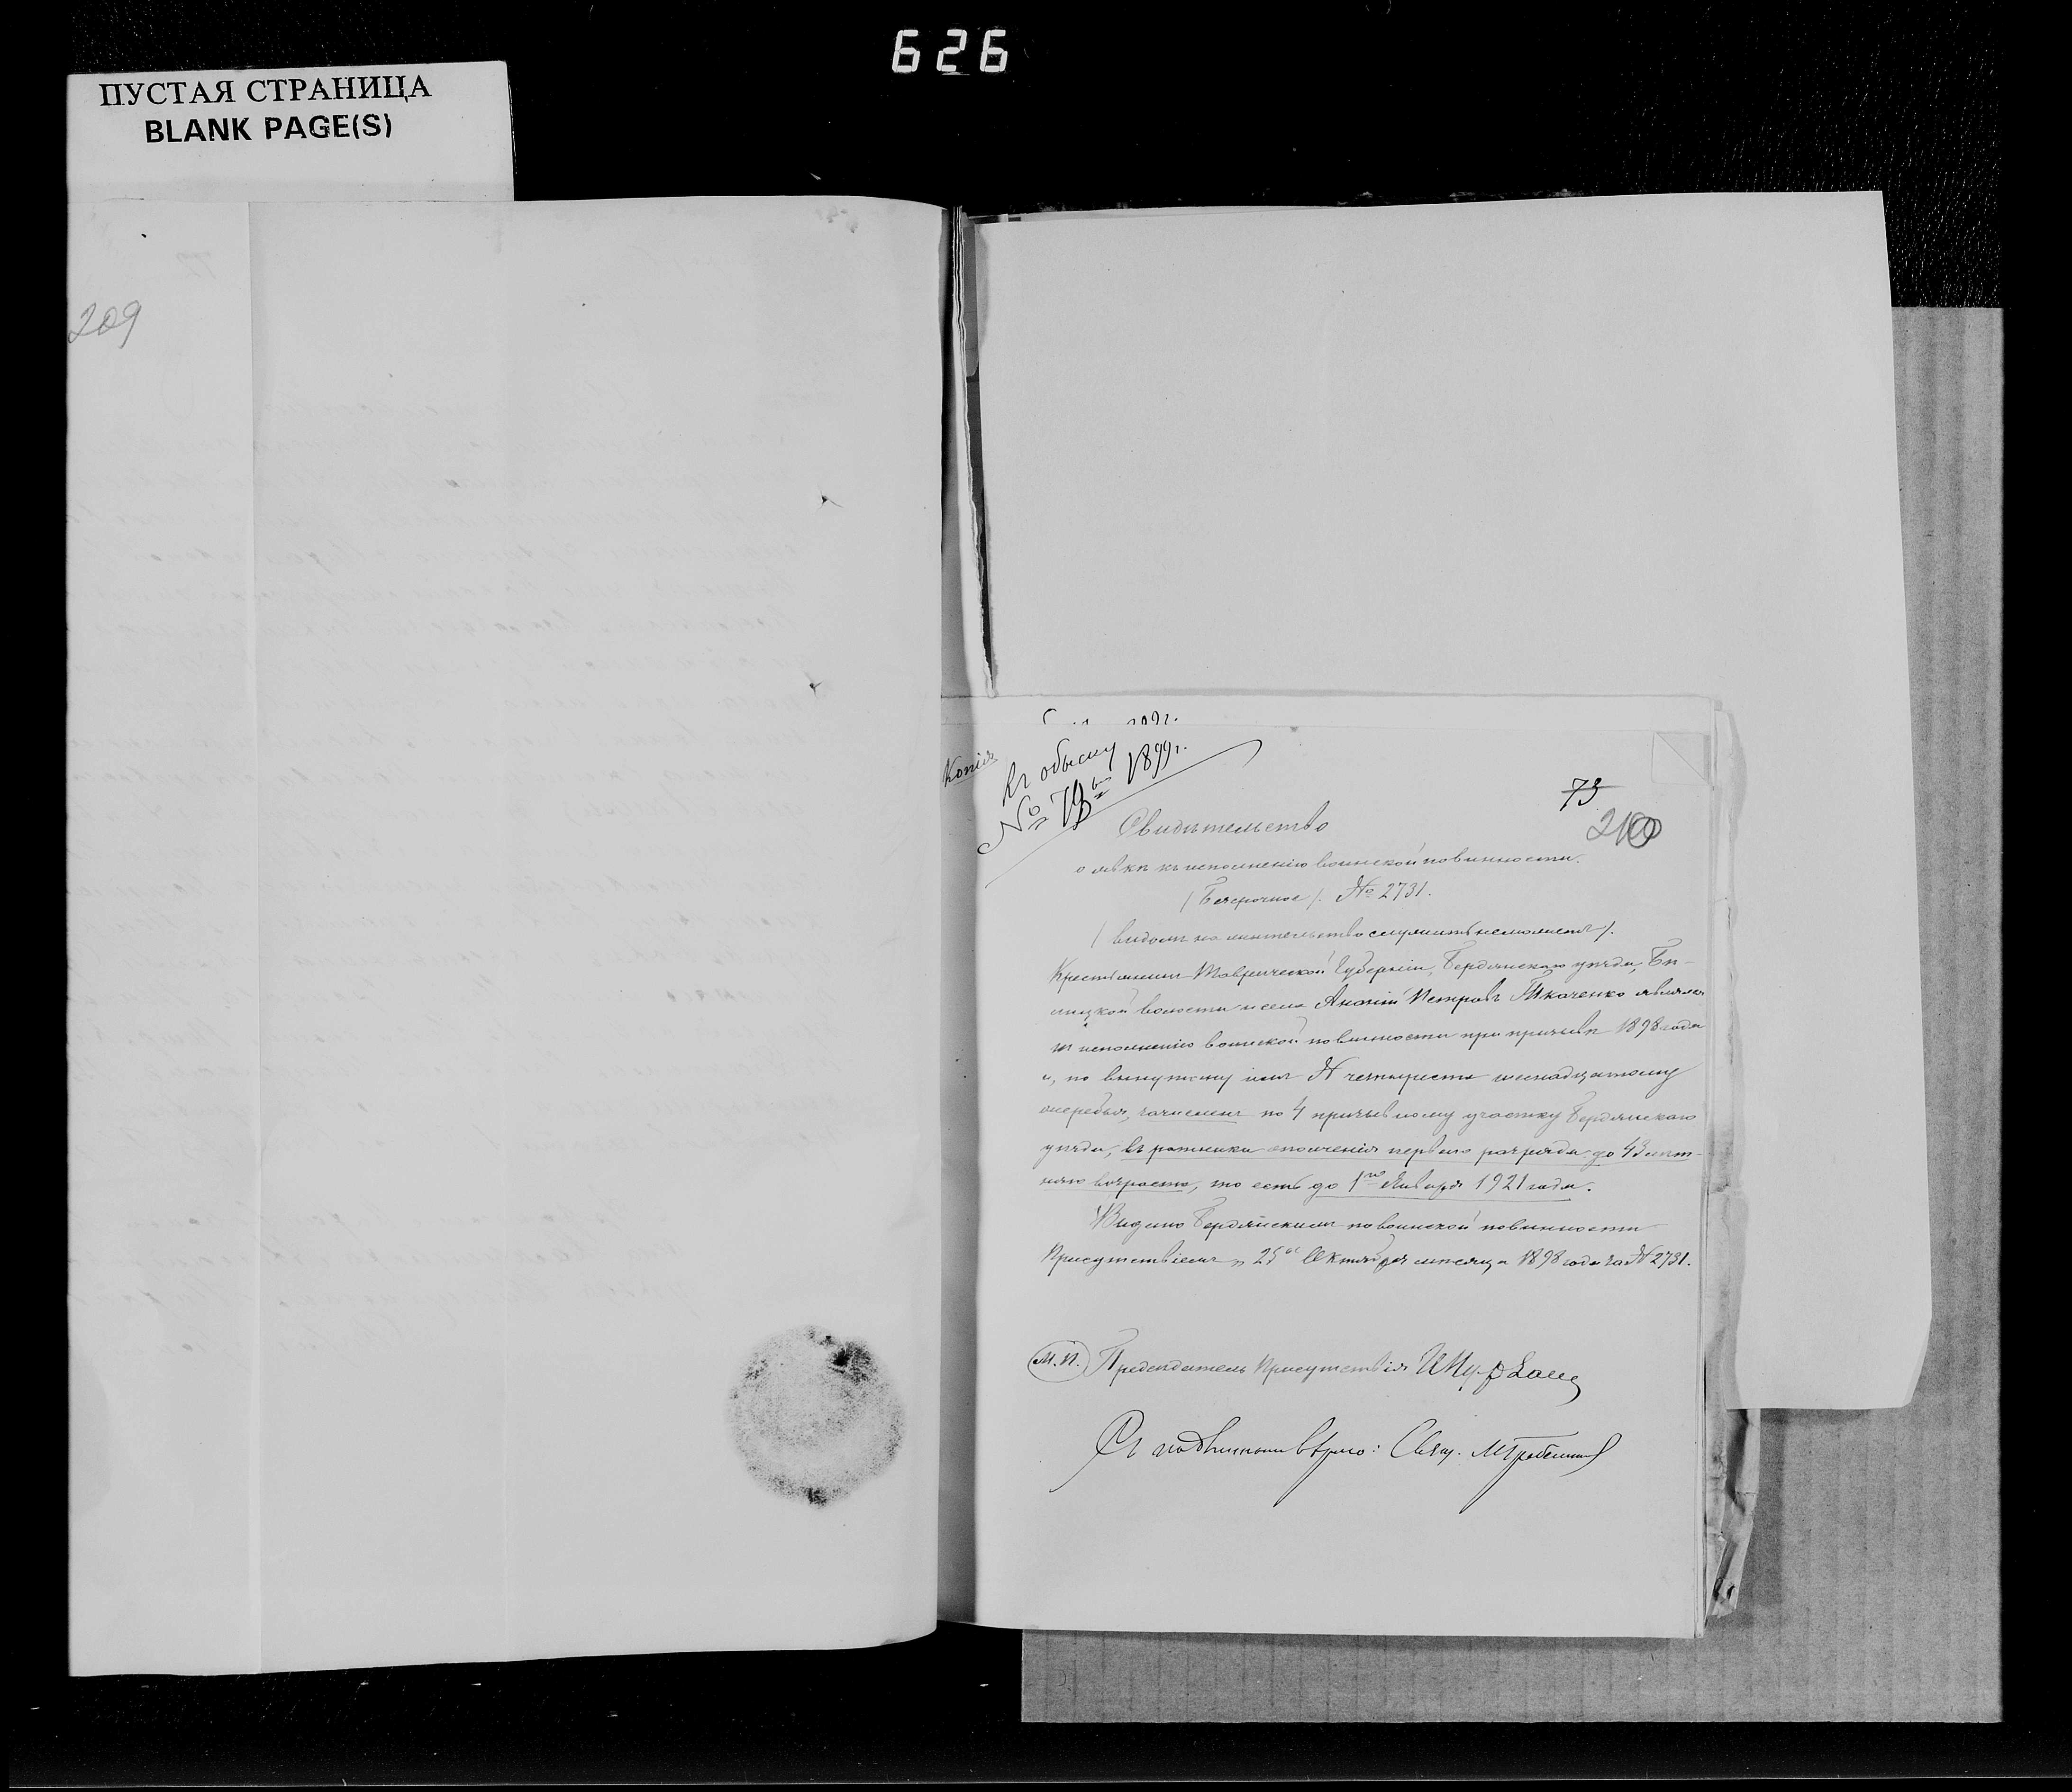 626
ПУСТАЯ СТРАНИЦА
BLANK PAGE(S)
209
Копія
Къ обыску
№ 73 1899 г.
73
210
Свидѣтельство
о явкѣ къ исполненію воинской повинности.
(Безсрочное). № 2731.
(видомъ на жительство служить не можетъ).
Крестьянинъ Таврической Губерніи, Бердянскаго уѣзда,
волости и села Ананій Петровъ Ткаченко являлся
къ исполненію воинской повинности при призывѣ 1898 года
и, по вынутому имъ № четыреста
жеребью, зачисленъ по 4 призывному участку Бердянскаго
уѣзда, въ ратники ополченія перваго разряда до 43 лѣт-
няго возраста, то есть до 1го Января 1921 года.
Выдано Бердянскимъ по воинской повинности
Присутствіемъ „25" Октября мѣсяца 1898 года за № 2731.
М.П. Предсѣдатель Присутствія
Съ подлиннымъ вѣрно: Свящ.